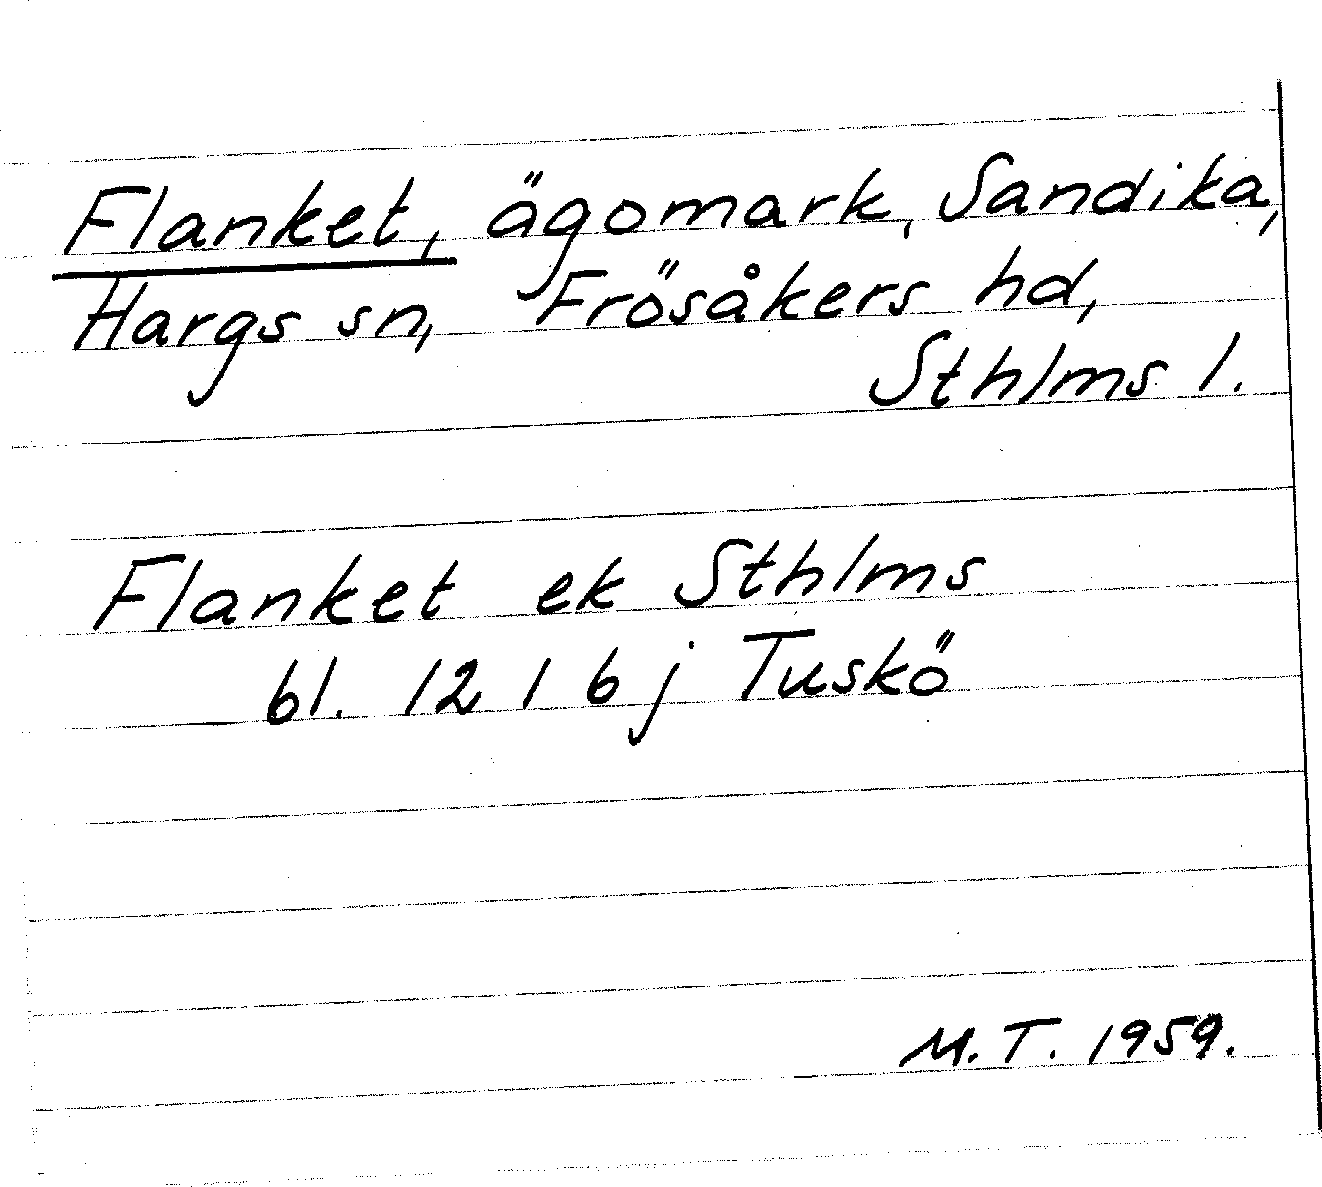 Flanket, ägomark, Sandika,
Hargs sn, Frösåkers hd,
Sthlms l.
Flanket ek Sthlms
bl. 12 I 6 j Tuskö
M.T. 1959.